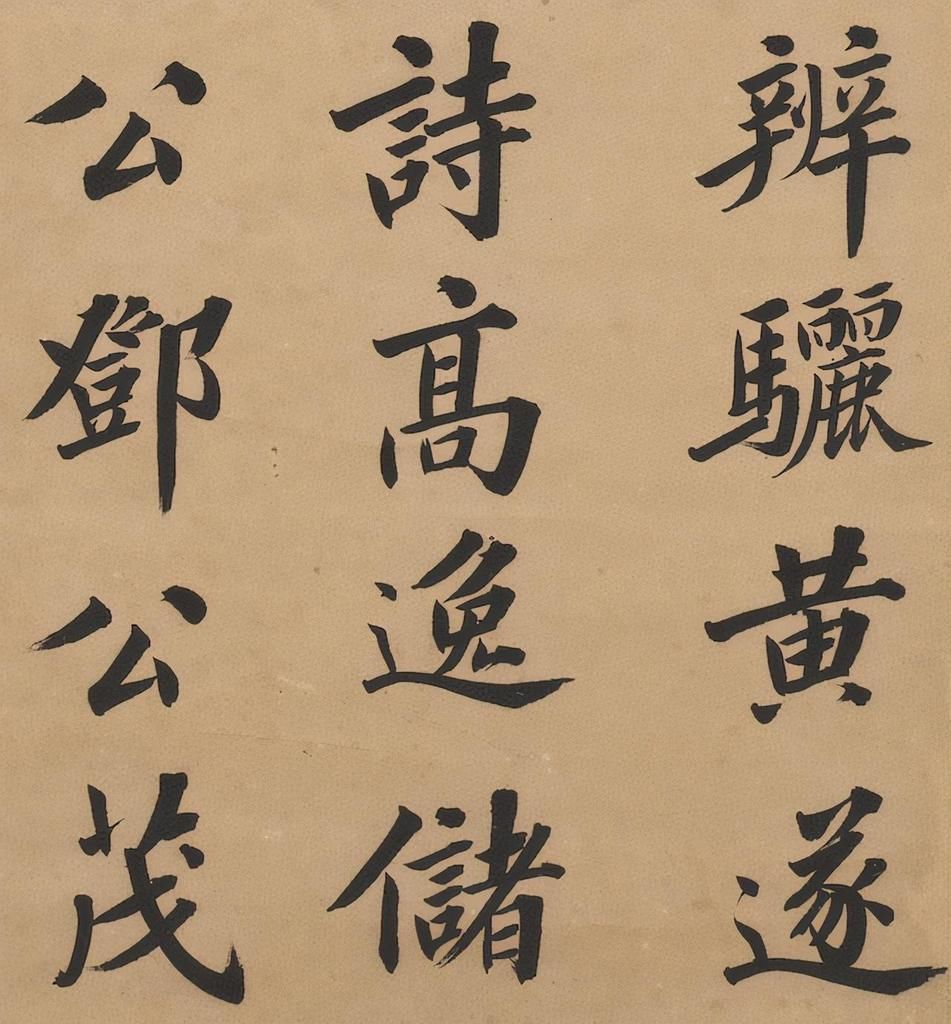 辨驪黄遂
詩髙逸儲
公鄧公茂